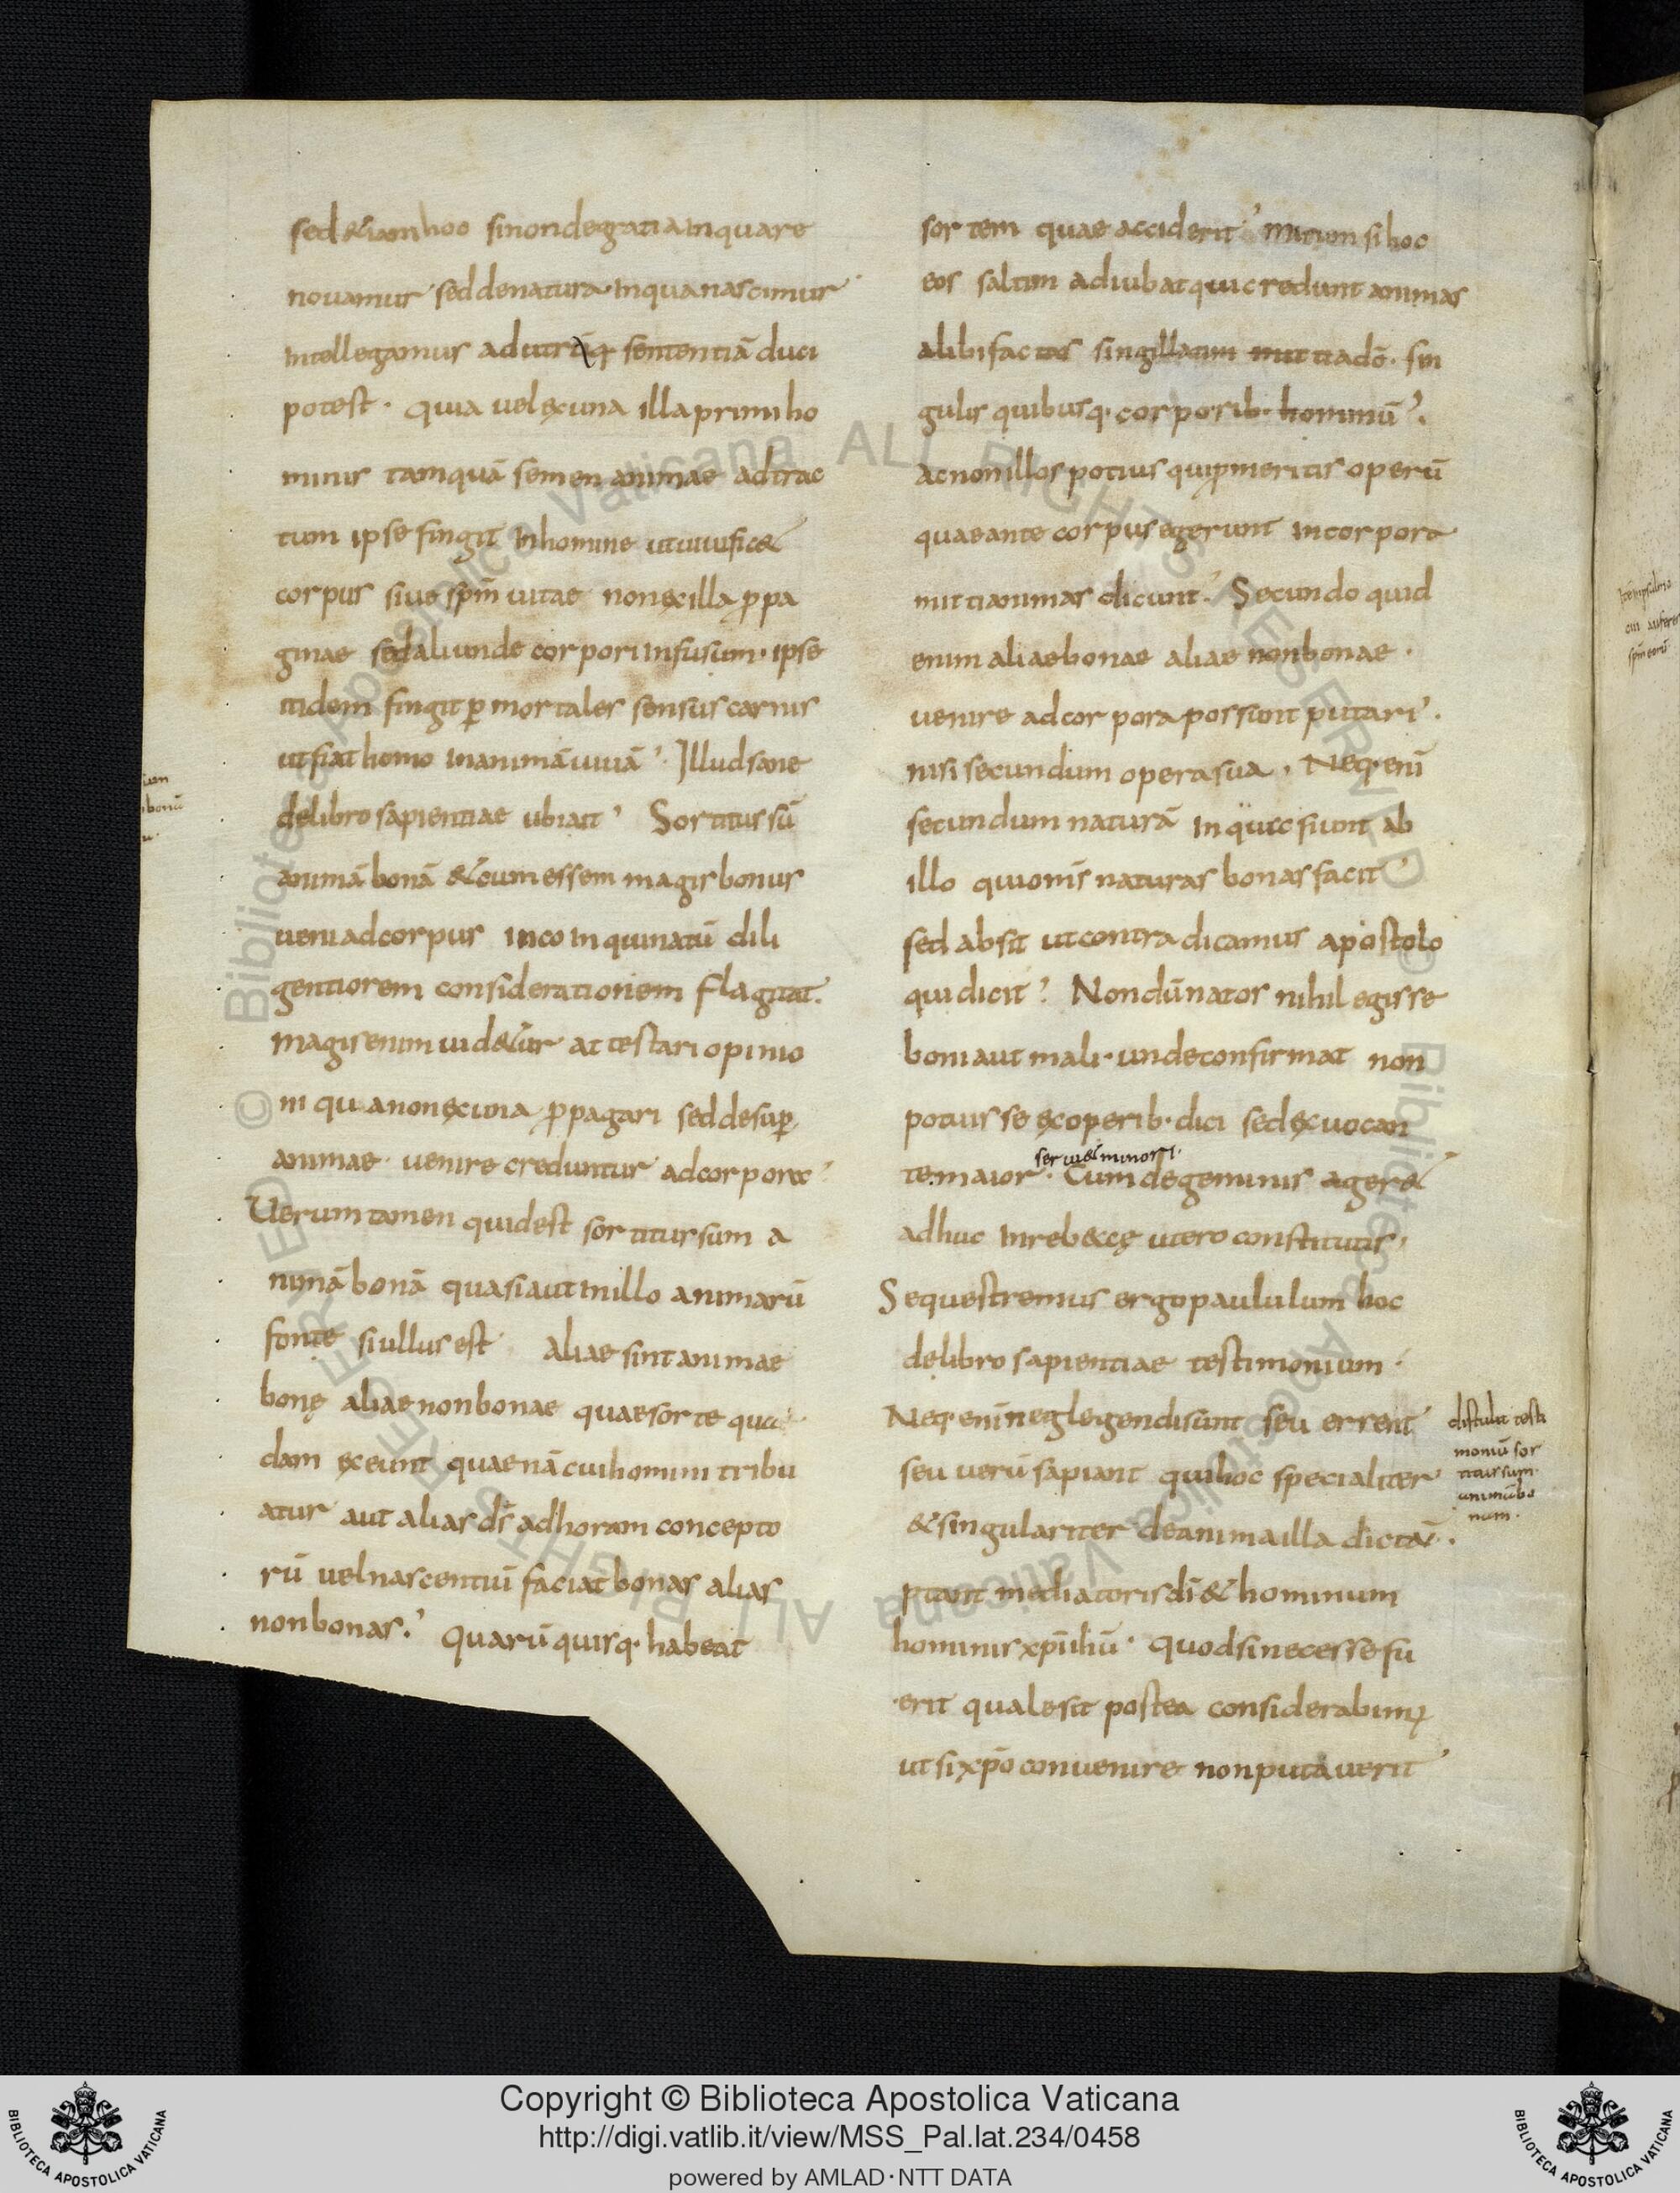 sed &iam hoc si non de gratia in qua re
nouamur sed de natura. in qua nascimur
intellegamus ad utrãq; sententiã duci
potest. quia uel ex una illa primi ho
minis tamquã semen animae adtrac
tum ipse fingit in homine ut uiuific&
corpus siue spm̄ uitae non ex illa ꝓpa
ginae sed aliunde corpori infusum. ipse
itidem fingit ꝑ mortales sensus carnis
ut fiat homo in animã uiuã. Illud sane
de libro sapientiae ubi ait Sortitus sū
animã bonã & cum essem magis bonus
ueni ad corpus incoinquinatū dili
gentiorem considerationem flagitat.
magis enim uid&ur attestari opinio
ni qua non ex una ꝓpagari sed desuꝑ
animae uenire creduntur ad corpora
Uerum tamen quid est sortitus sum a
nimã bonã quasi aut in illo animarū
fonte si ullus est aliae sint animae
bonę aliae non bonae quae sorte qua
dam exeunt quaenã cui homini tribu
atur aut alias ds̄ ad horam concepto
rū uel nascentiū faciat bonas alias
non bonas. quarū quisq; habeat
sortem quae acciderit mirum si hoc
eos saltim adiubat qui credunt animas
alibi factas singillatim mitti a dō. sin
gulis quibusq; corporib. hominū.
ac non illos potius qui ꝓ meritis operū
quae ante corpus egerunt in corpora
mitti animas dicunt. Secundo quid
enim aliae bonae aliae non bonae.
uenire ad corpora possunt putari.
nisi secundum opera sua. Neq; enī
secundum naturã in qua fiunt ab
illo qui om̄s naturas bonas facit
sed absit ut contradicamus apostolo
qui dicit. Nondū natos nihil egisse
boni aut mali. unde confirmat non
potuisse ex operib. dici sed ex uocan
seruiet minori.
te. maior. Cum de geminis ager&
adhuc in rebeccę utero constitutis,
Sequestremus ergo paululum hoc
de libro sapientiae testimonium.
Neq; enī neglegendi sunt seu errent
seu uerū sapiant qui hoc specialiter
& singulariter de anima illa dictã.
putant mediatoris dī & hominum
hominis xp̄i ihū. quod si necesse fu
erit quale sit postea considerabimus
ut si xp̄o conuenire non putauerit
distulit testi
moniū sor
titus sum
animã bo
nam.
Copyright © Biblioteca Apostolica Vaticana
http://digi.vatlib.it/view/MSS_Pal.lat.234/0458
powered by AMLAD·NTT DATA
BIBLIOTECA APOSTOLICA VATICANA
BIBLIOTECA APOSTOLICA VATICANA